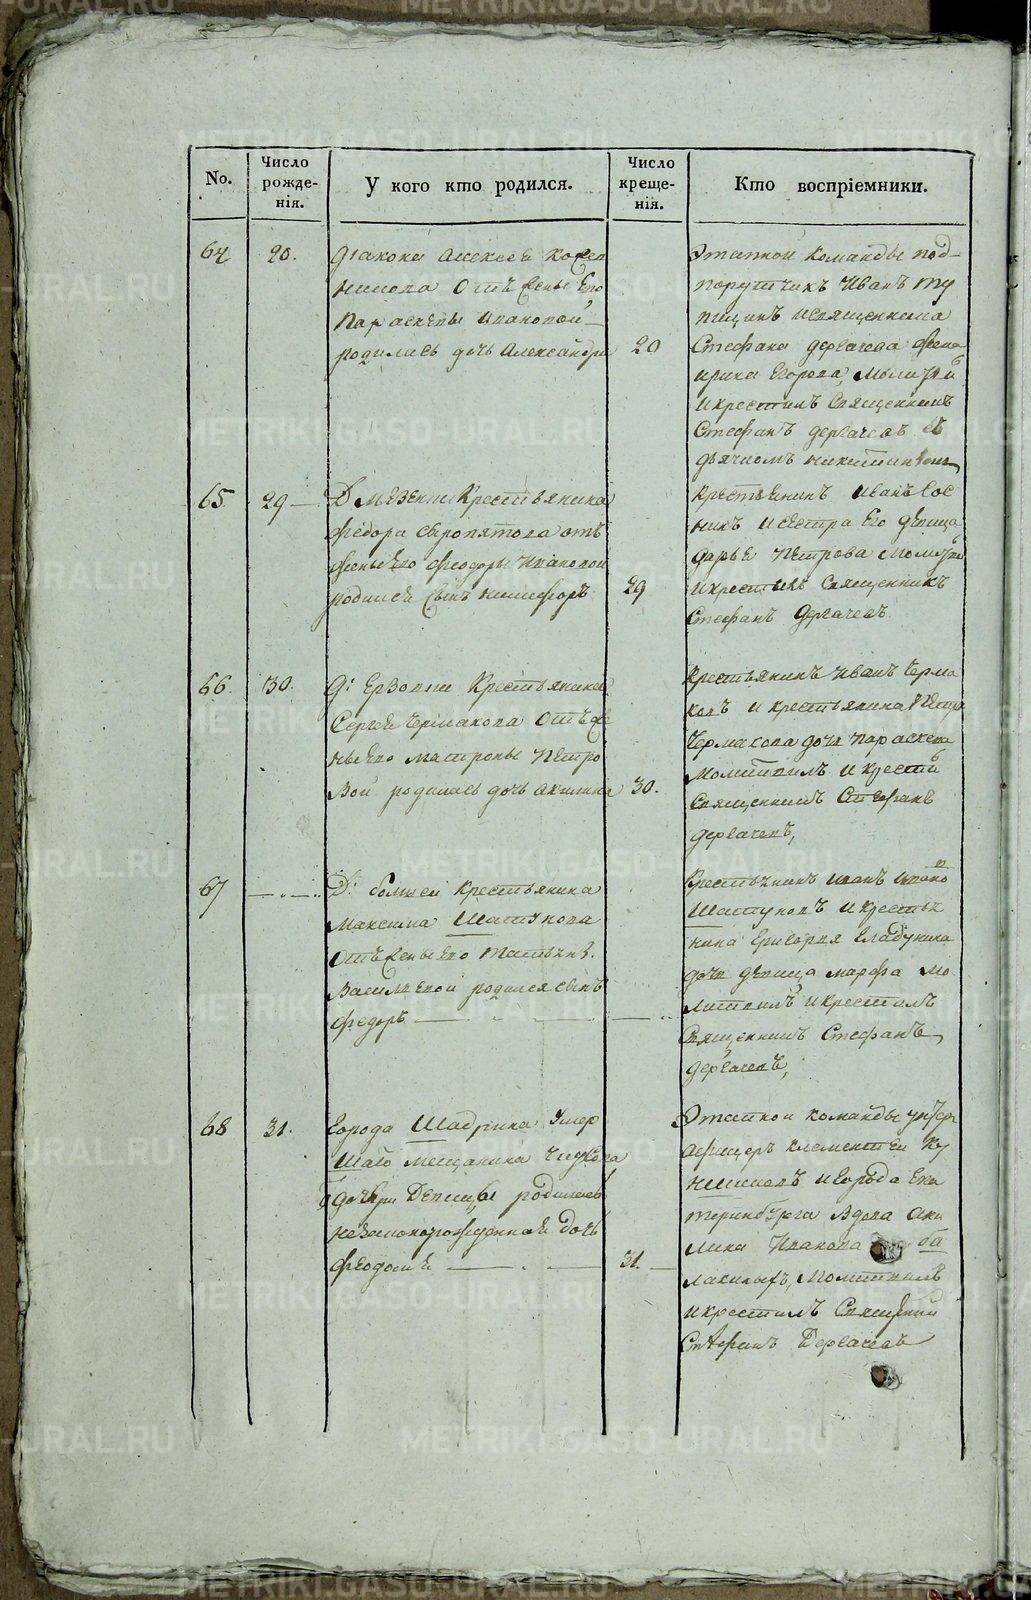 METRIKI.GASO-URAL.RU
No.
Число
рожде-
нія.
У кого кто родился.
Число
креще-
нія.
Кто воспріемники.
64
20.
Діакона Алексея
отъ жены Его
Параскевы Ивановой
родилась дочь Александра
20
Этатной команды под-
порутчикъ Иванъ Ту
пицинъ и священника
Стефана Дергачева
Егорова, молитв
и крестилъ Священникъ
Стефанъ Дергачевъ съ
дьячкомъ
65.
29
Д. Мезенки Крестьянина
Федора Сыропятова отъ
жены его Феодоры Ивановой
родился сынъ Никифоръ
29
Крестьянинъ Иванъ Сос
никъ и сестра Его девица
Дарья Петрова молитв
и крестилъ Священникъ
Стефанъ Дергачевъ
66.
30.
Д: Ерзовки Крестьянина
Сергея Чермакова отъ же
ны его Матроны Петро
вой родилась дочь Акилина
30.
Крестьянинъ Иванъ Черма
ковъ и крестьянина Петра
Чермакова дочь Параскева
молитвилъ и крести
Священникъ Стефанъ
Дергачевъ,
67
Д: Крестьянина
Максима Шатунова
отъ жены его Татьяны
Васильевой родился сынъ
Федоръ
Крестьянинъ Иванъ Ивано
Шатуновъ и крестья
нина Григорья
дочь девица Марфа мо
литвилъ и крестилъ
Священникъ Стефанъ
Дергачевъ,
68
31.
Города Шадринска Умер
шаго мещанина
дочери девицы родилась
незаконорожденная дочь
Феодосия
31.
Этатной команды унтер
афицеръ Клементей Ку
и города Ека
теринбурга вдова Аки
лина Иванова Ба
лакиныхъ, молитвилъ
и крестилъ Священник
Стефанъ Дергачевъ